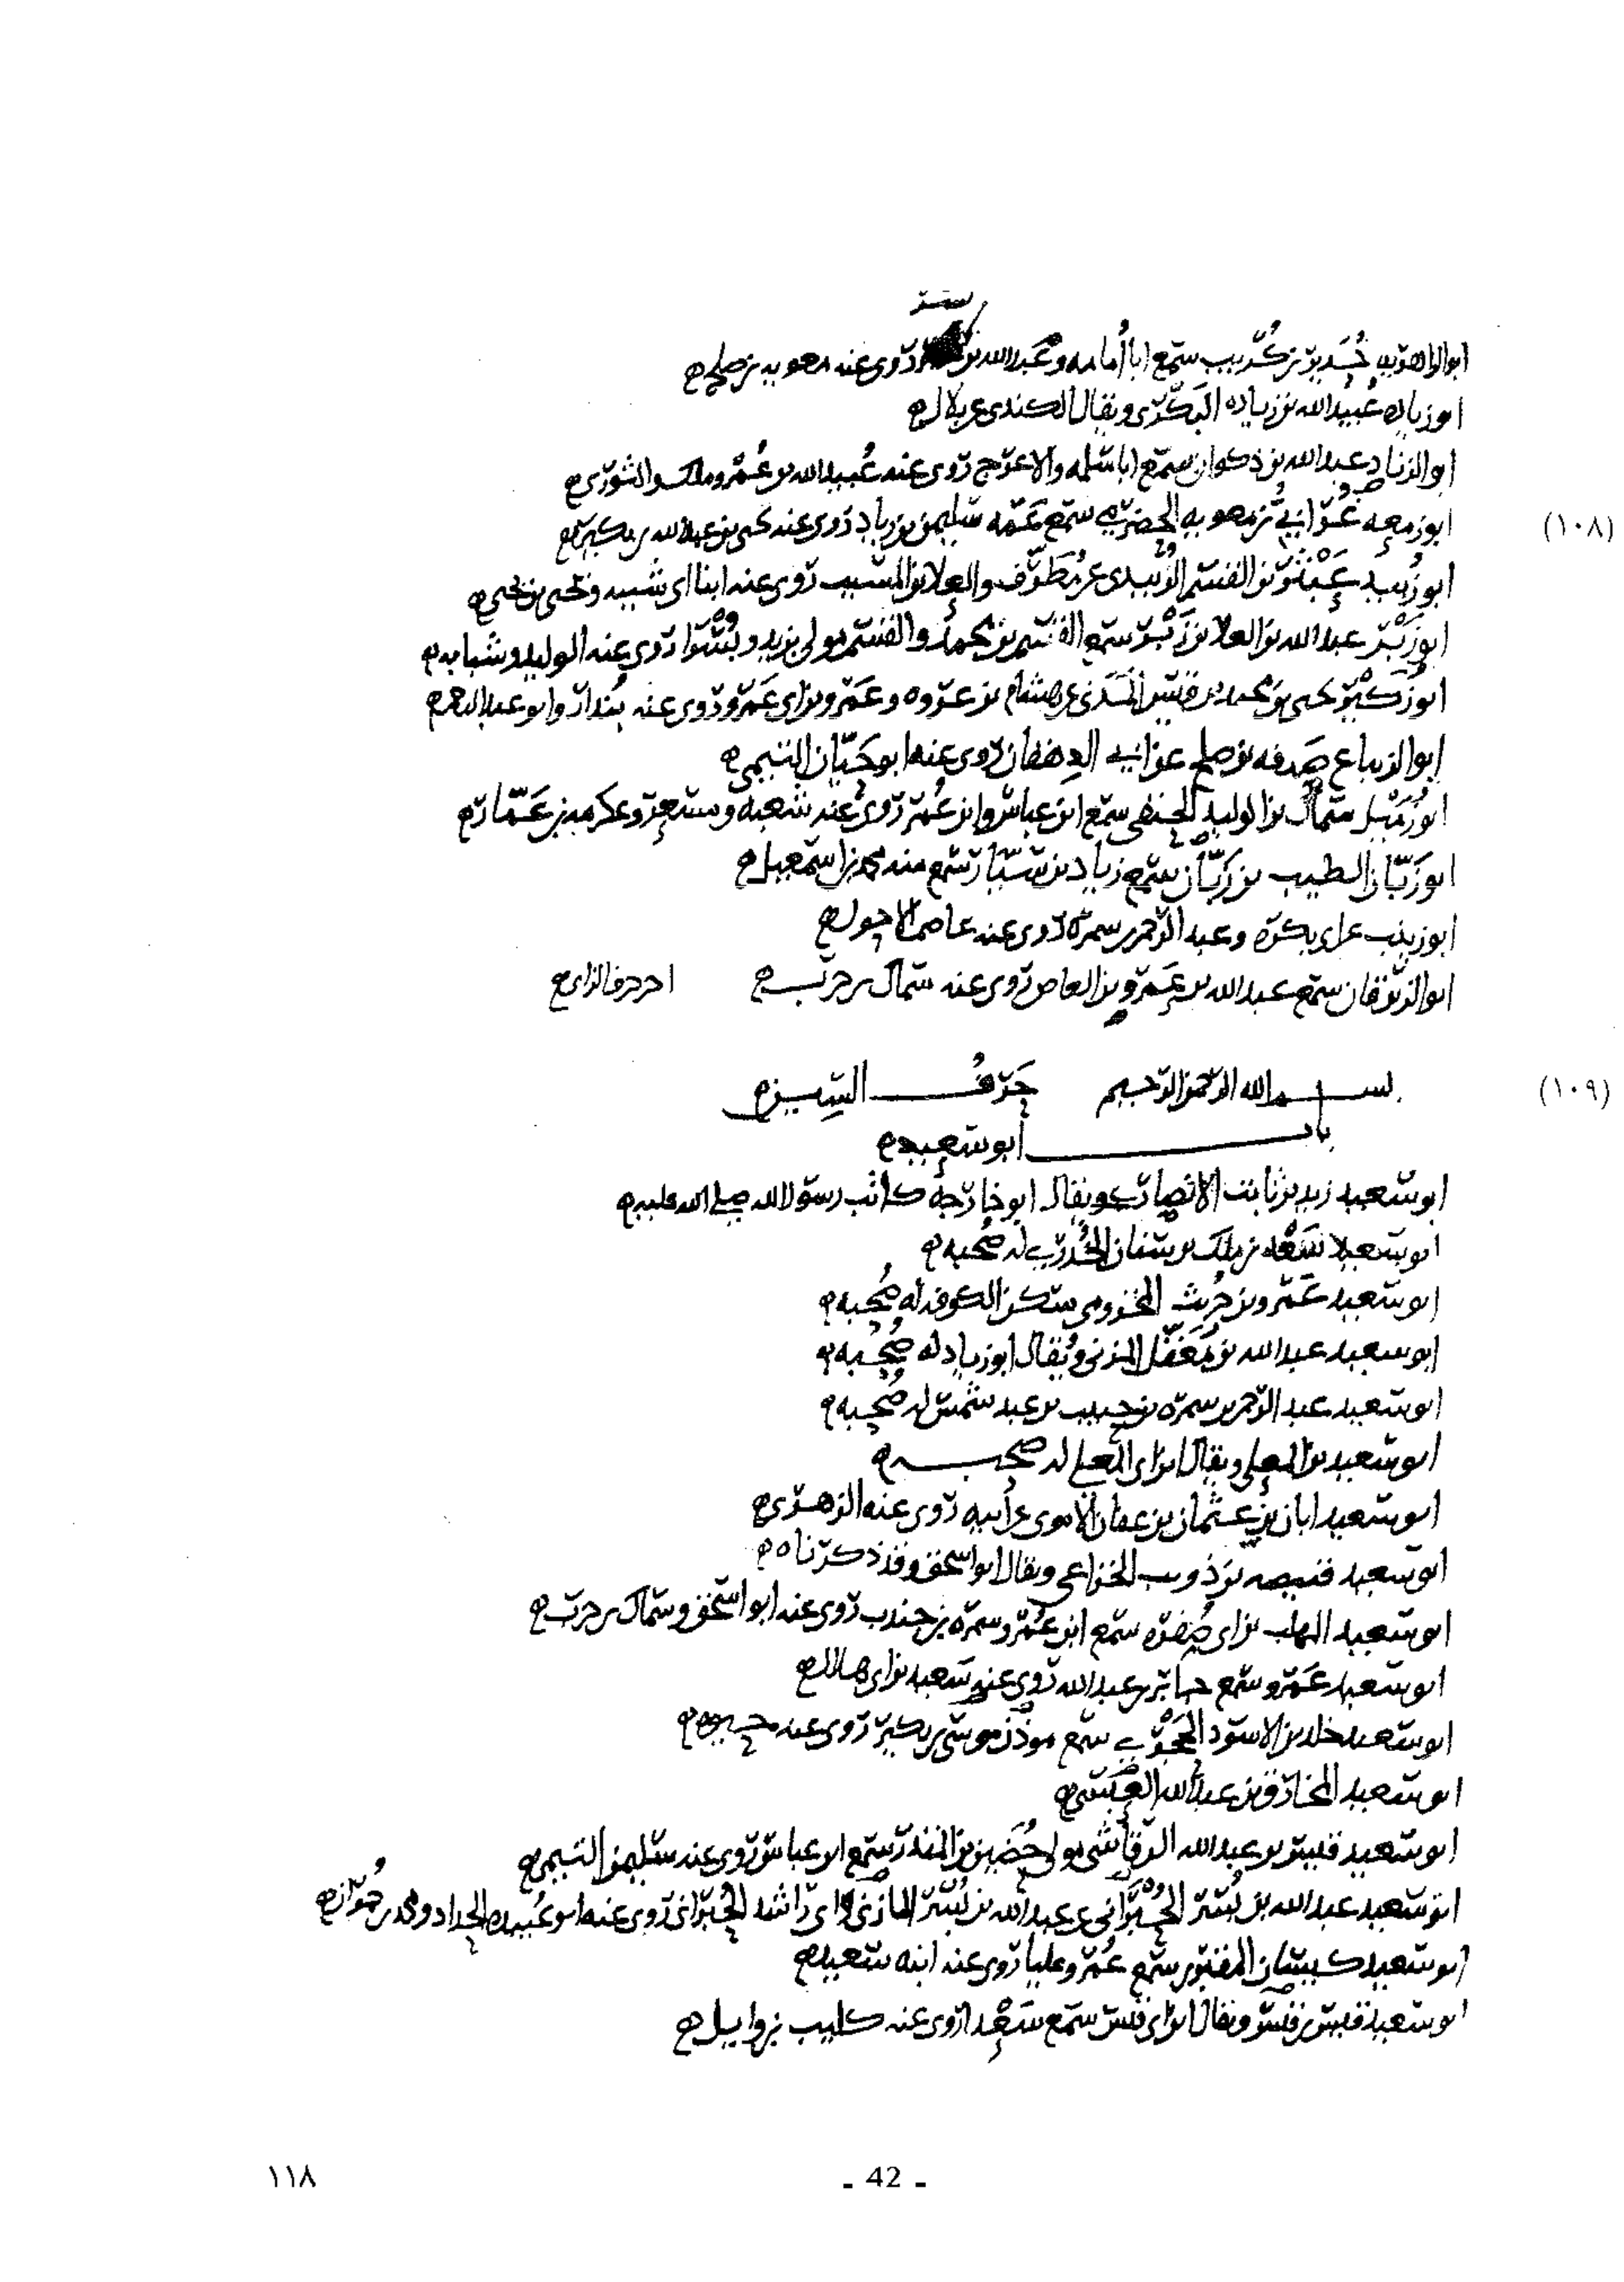 بسر
ابو الزاهرية حُدَير بن كُرَيب سمع ابا أُمامه وعَبد الله بن روى عنه معويه بن صلح ه
ابو زياده عُبيد الله بن زياده البَكْرى ويقال الكندى عن بلال ه
ابو الزناد عبد الله بن ذكوان سمع ابا سلمه والاعرج روى عنه عُبيد الله بن عُمَر وملك والثورى ه
ابو زمعه عن معويه الحضرمى سمع عمه سليمن بن زياد روى عنه يحيى بن عبد الله بن بكير ه
(١٠٨)
ابو زُبيد عَبْثَر بن القسم الزُبيدى عن مُطَرِّف والعلا بن المسيب روى عنه ابنا ابى شيبه ويحيى بن يحيى ه
ابو زَبْر عبد الله بن العلا بن زَبْر سمع القسم بن محمد والقسم مولى يزيد وبُسْرا روى عنه الوليد وشبابه ه
ابو زُكَيْر يحيى بن محمد بن قيس المدنى عن هشام بن عروه وعَمرو بن ابى عَمرو روى عنه بُندار وابو عبد الله ه
ابو الزنباع صدقه بن صلح عن ابى الدهقان روى عنه ابو حَيّان التيمى ه
ابو زُمَيْل سماك بن الوليد الحنفى سمع ابن عباس وابن عُمَر روى عنه شعبه ومسعر وعكرمه بن عَمّار ه
ابو زَبّان الطيب بن زَبّان سمع زياد بن سَيّار سمع منه محمد بن اسمعيل ه
ابو زينب عن ابى بكره وعبد الرحمن بن سمره روى عنه عاصم الاحول ه
ابو الزبرقان سمع عبد الله بن عَمرو بن العاص روى عنه سماك بن حرب ه اخر حرف الزاى ه
بسم الله الرحمن الرحيم حَرفُ السين ه
(١٠٩)
باب ابو سعيد ه
ابو سعيد زيد بن ثابت الانصارى ويقال ابو خارجه كاتب رسول الله صلى الله عليه ه
ابو سعيد سَعْد بن ملك بن سنان الخُدْرى له صُحبه ه
ابو سعيد عَمرو بن حُرَيث المخزومى سكن الكوفه له صُحبه ه
ابو سعيد عبد الله بن مُغَفَّل المزنى ويُقال ابو زياد له صُحبه ه
ابو سعيد عبد الرحمن بن سمره بن حبيب بن عبد شمس له صُحبه ه
ابو سعيد بن المعلى ويقال ابن ابى المعلى له صحبه ه
ابو سعيد ابان بن عثمان بن عفان الاموى عن ابيه روى عنه الزهرى ه
ابو سعيد قبيصه بن ذويب الخزاعى ويقال ابو اسحق وقد ذكرناه ه
ابو سعيد المهلب بن ابى صُفره سمع ابن عُمَر وسمره بن جندب روى عنه ابو اسحق وسماك بن حرب ه
ابو سعيد عَمرو سمع جابر بن عبد الله روى عنه سعيد بن ابى هلال ه
ابو سعيد خلد بن الاسود الحَجْرى سمع موذن موسى بن بكير روى عنه حيوه ه
ابو سعيد المخارق بن عبد الله العَبسى ه
ابو سعيد قيس بن عبد الله الرقاشى مولى حُضَين بن المنذر سمع ابن عباس روى عنه سليمن التيمى ه
ابو سعيد عبد الله بن بُسر الحُبْرانى عن عبد الله بن بُسر المازنى وابى راشد الحُبرانى روى عنه ابو عُبيده الحداد ومحمد بن حُمران ه
ابو سعيد كيسان المقبرى سمع عُمَر وعليا روى عنه ابنه سعيد ه
ابو سعيد قيس بن قيس ويقال ابن ابى قيس سمع سَعْدا روى عنه كليب بن وايل ه
١١٨
- 42 -